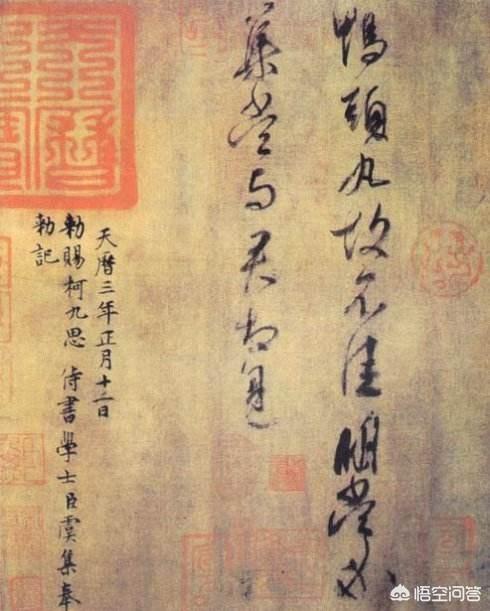 鴨頭丸故不佳明當必
集當與君相見
天曆三年正月十二日
勅賜柯九思 侍書學士臣虞集奉
勅記
天曆之寳
悟空问答